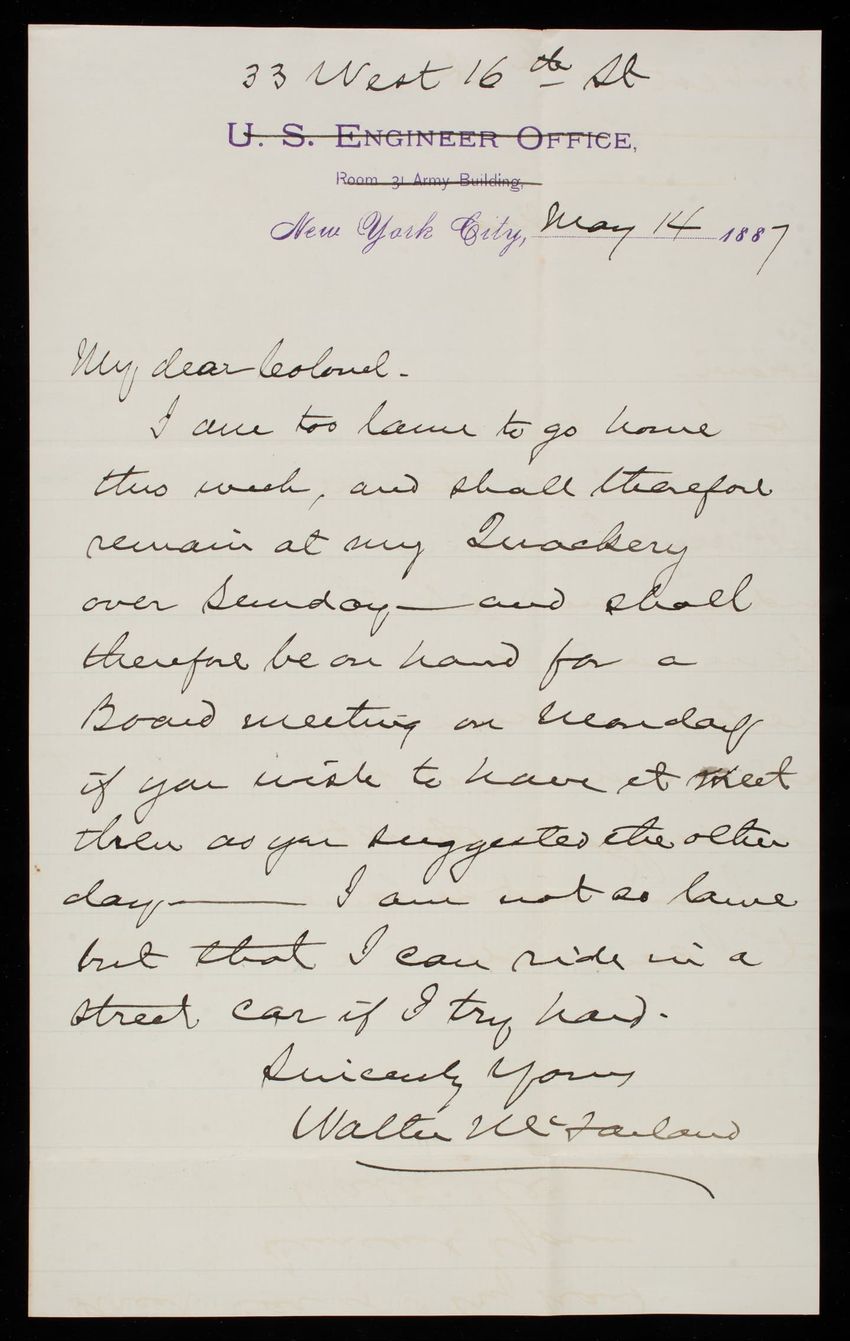 33 West 16th St
U. S. ENGINEER OFFICE,
Room 31 Army Building,
New York City, May 14 1887
My dear Colonel -
I am too lame to go home
this week, and shall therefore
remain at my Quackery
over Sunday — and shall
therefore be on hand for a
Board meeting on Monday
if you wish to have it meet
then as you suggested the other
day — I am not so lame
but that I can ride in a
street car if I try hard.
Sincerely Yours
Walter McFarland